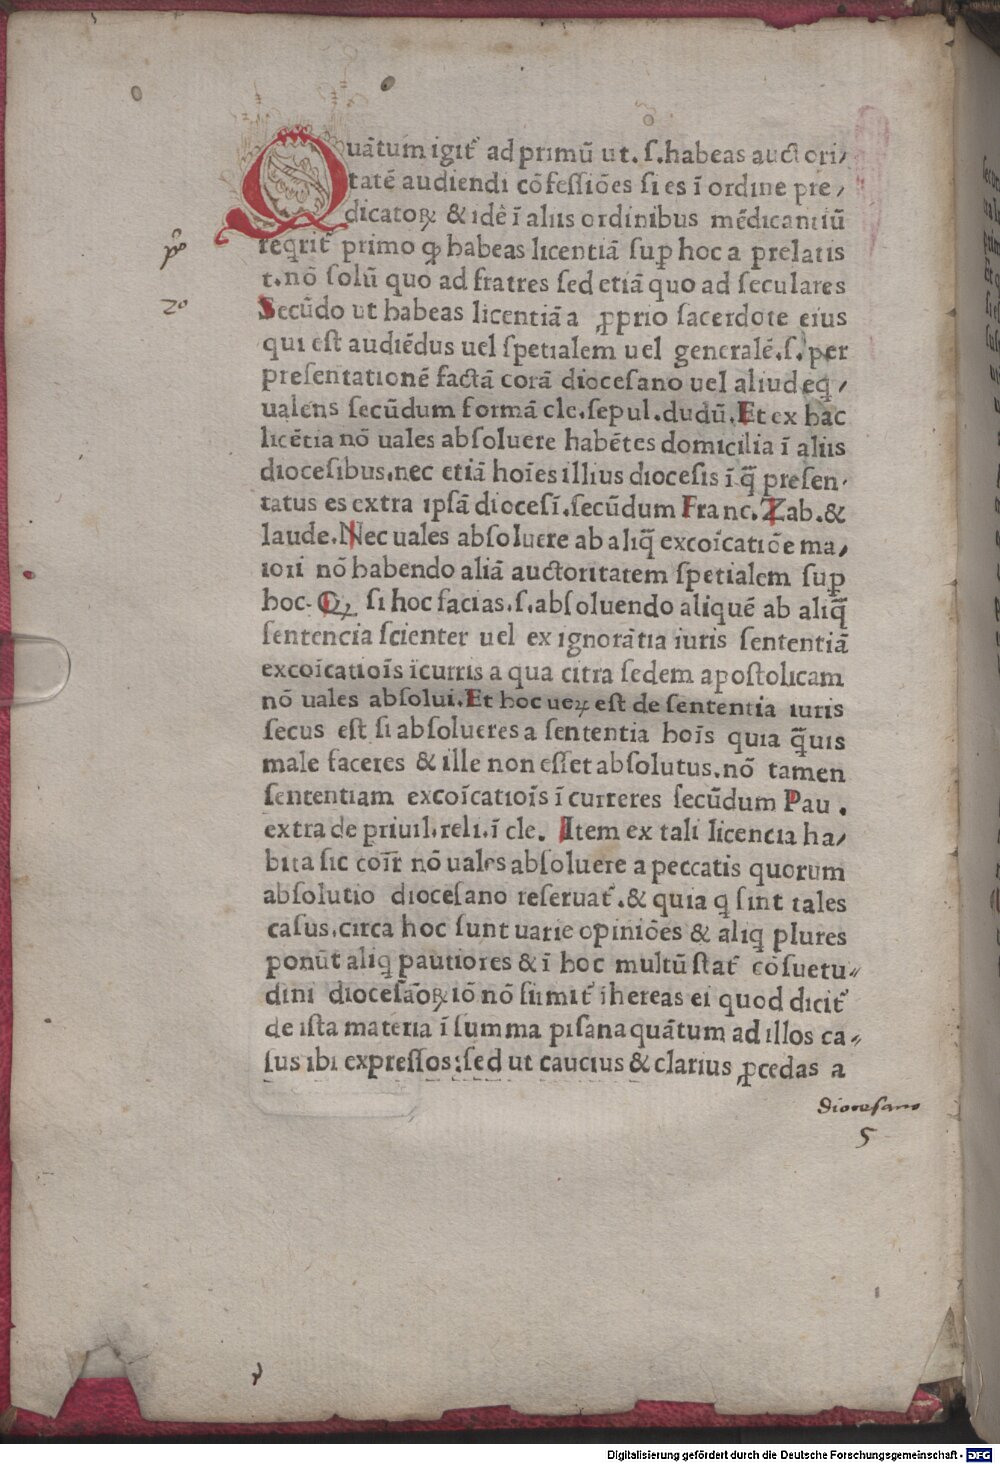 Quātum igit᷑ ad primū ut. ſ. habeas auctori/
tatē audiendi cōfeſſiōes ſi es ī ordine pre/
dicatoꝝ & idē ī aliis ordinibus mēdicantiū
reqrit᷑ primo ꝙ habeas licentiā ſuꝑ hoc a prelatis
t. nō ſolū quo ad fratres ſed etiā quo ad ſeculares
Secūdo ut habeas licentiā a ꝓprio ſacerdote eius
qui eſt audiēdus uel ſpetialem uel generalē. ſ. per
preſentationē factā corā dioceſano uel aliud eq̄/
ualens ſecūdum formā cle. ſepul. dudū. Et ex hac
licētia nō uales abſoluere habētes domicilia ī aliis
dioceſibus. nec etiā hoīes illius dioceſis ī q̄ preſen-
tatus es extra ipſā dioceſī. ſecūdum Franc. Zab. &
laude. Nec uales abſoluere ab aliq̄ excoīcatiōe ma/
iori nō habendo aliā auctoritatem ſpetialem ſuꝑ
hoc. Qꝫ ſi hoc facias. ſ. abſoluendo aliquē ab aliq̄
ſentencia ſcienter uel ex ignorātia iuris ſententiā
excoīcatioīs īcurris a qua citra ſedem apoſtolicam
nō uales abſolui. Et hoc ueꝝ eſt de ſententia iuris
ſecus eſt ſi abſolueres a ſententia hoīs quia q̄uis
male faceres & ille non eſſet abſolutus. nō tamen
ſententiam excoīcatioīs ī curreres ſecūdum Pau.
extra de priuil. reli. ī cle. Item ex tali licencia ha/
bita ſic coīr̄ nō uales abſoluere a peccatis quorum
abſolutio dioceſano reſeruat᷑. & quia q̄ ſint tales
caſus. circa hoc ſunt uarie opiniōes & aliq̄ plures
ponūt aliq̄ pautiores & ī hoc multū ſtat᷑ cōſuetu/
dini dioceſāoꝝ iō nō ſūmit᷑ īhereas ei quod dicit᷑
de iſta materia ī ſumma piſana quātum ad illos ca/
ſus ibi expreſſos: ſed ut caucius & clarius ꝓcedas a
diocesano
5
p̊o
2o
Digitalisierung gefördert durch die Deutsche Forschungsgemeinschaft - DFG